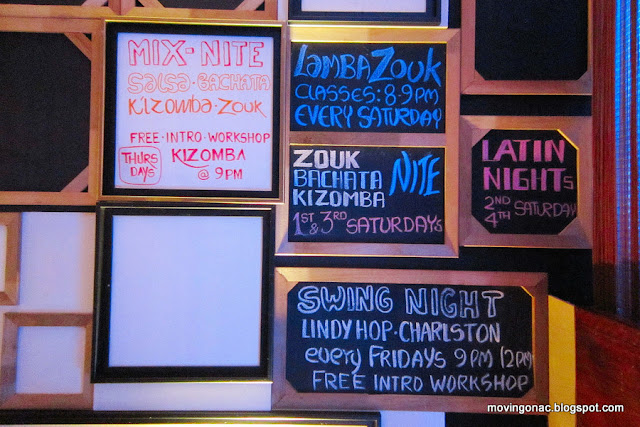 MIX-NITE
SALSA · BACHATA
KiZOMBA · ZOUK
FREE · INTRO · WORKSHOP
THURSDAYS
KIZOMBA
@ 9PM
LAMBAZOUK
CLASSES: 8-9PM
EVERY SATURDAY
ZOUK
BACHATA NITE
KIZOMBA
1ST & 3RD SATURDAYs
LATIN
NIGHTs
2ND
4TH SATURDAY
SWING NIGHT
LINDY HOP · CHARLSTON
every FRIDAYS 9PM 12PM
FREE INTRO WORKSHOP
movingonac.blogspot.com